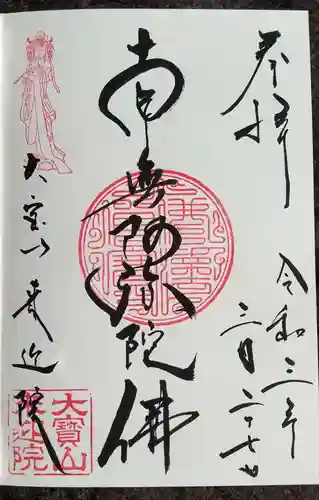 奉拝
令和三年
三月二十七日
南無阿弥陀佛
大宝山 来迎院
大寶山